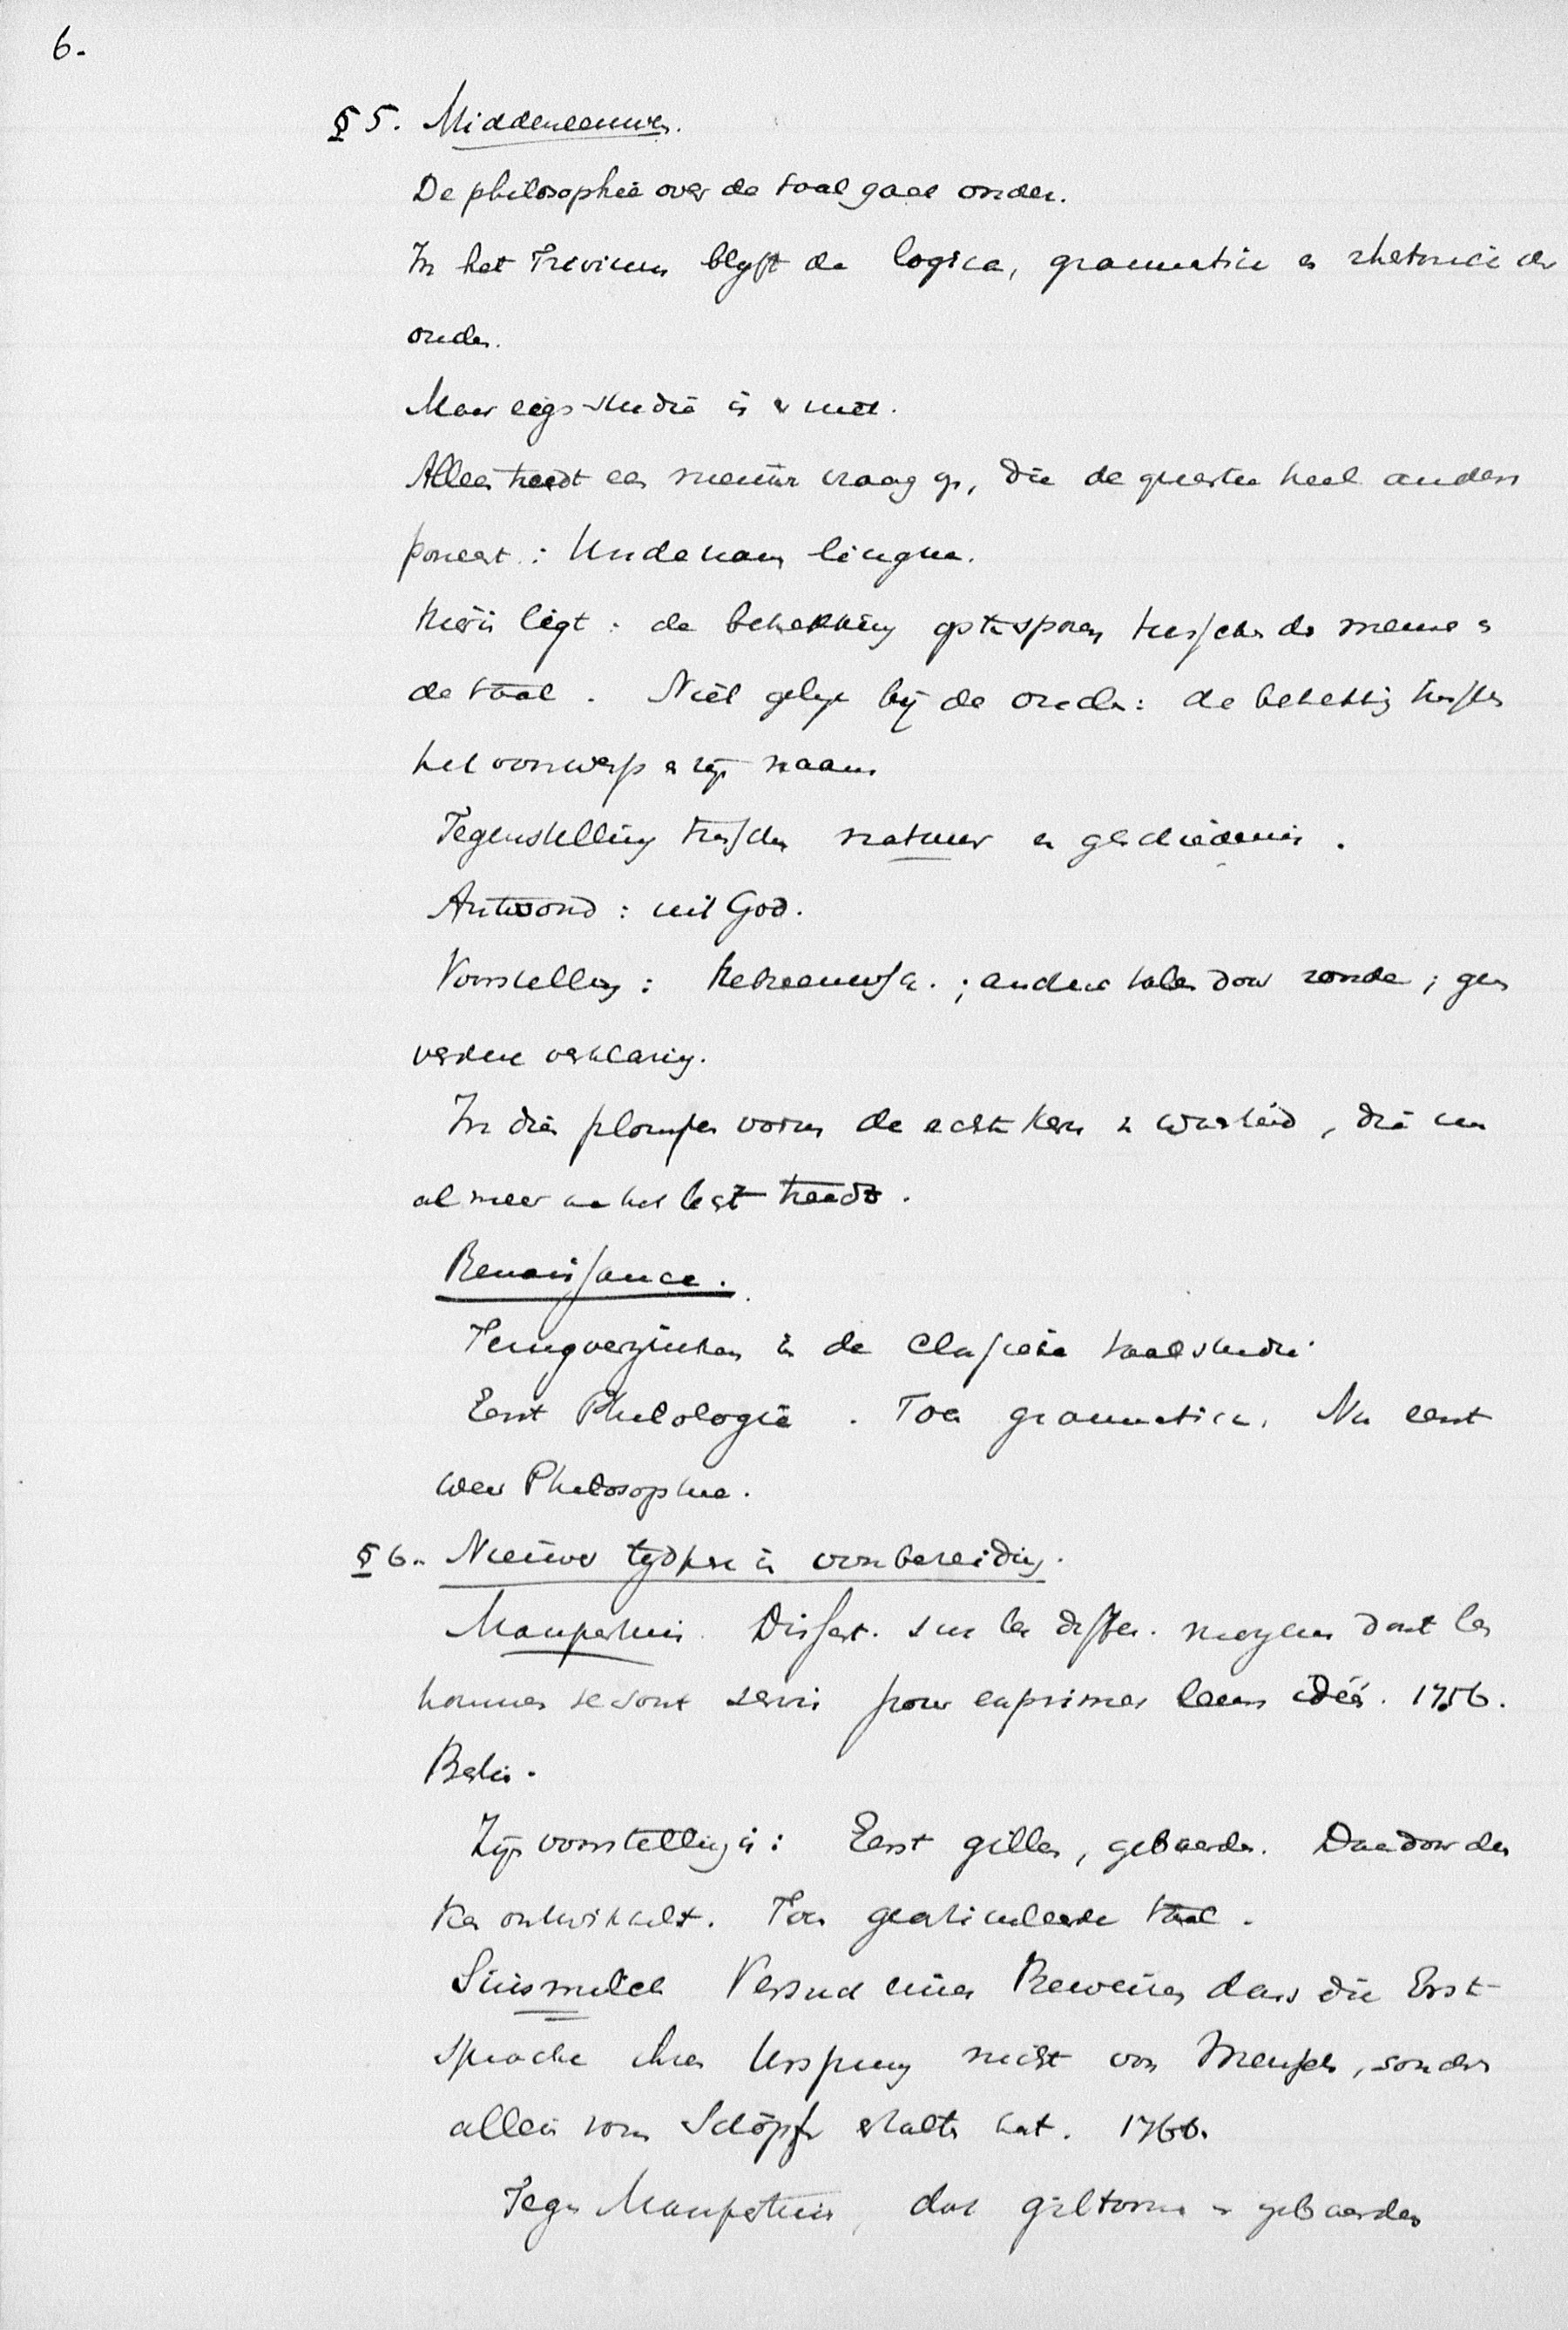 6.
§ 5. Middeneeuwen.
De philosophie over de taal gaat onder.
In het Trivium blyft de logica, grammatica en rhetorica der
ouden.
Maar eigen studie is er niet.
Alleen treedt een nieuwe vraag op, die de questie heel anders
poneert: Undenam lingua.
Hierin ligt: de betrekking op te sporen tusschen de mensch en
de taal. Niet gelyk bij de ouden: de betrekking tusschen
het voorwerp en zijn naam
Tegenstelling tusschen natuur en geschiedenis.
Antwoord: uit God.
Voorstelling: Hebreeuwsch.; andere talen door zonde; geen
verdere verklaring.
In dien plompen vorm de echte kern en waarheid, die nu
al meer in het licht treedt.
Renaissance.
Terugverzinken in de classieke taalstudie
Eerst Philologie. Toen grammatica. Nu eerst
weer Philosophie.
§ 6. Nieuwe tydperk in voorbereiding.
Maupertuis. Dissert. sur les differ. moyens dont les
hommes se sont servis pour exprimer leurs idées. 1756.
Berlin.
Zijn voorstelling is: Eerst gillen, gebaarden. Daardoor den
ken ontwikkelt. Toen gearticuleerde taal.
Süssmilch Versuch eines Beweises dass die Erst
sprache ihren Ursprung nicht von Menschen, sondern
allein vom Schöpfer erhalten hat. 1766.
Tegen Maupertuis, dat giltonen en gebaarden